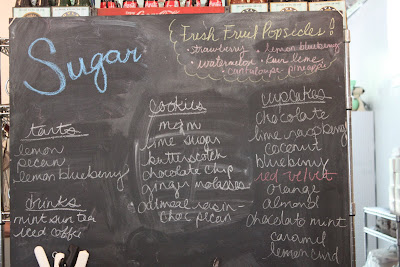 Sugar
Fresh Fruit Popsicles!
• strawberry • lemon blueberry
• watermelon • kiwi lime
• cantaloupe pineapple
tarts
lemon
pecan
lemon blueberry
drinks
mint sun tea
iced coffee
cookies
m&m
lime sugar
butterscotch
chocolate chip
ginger molasses
oatmeal raisin
choc pecan
cupcakes
chocolate
lime raspberry
coconut
blueberry
red velvet
orange
almond
chocolate mint
caramel
lemon curd